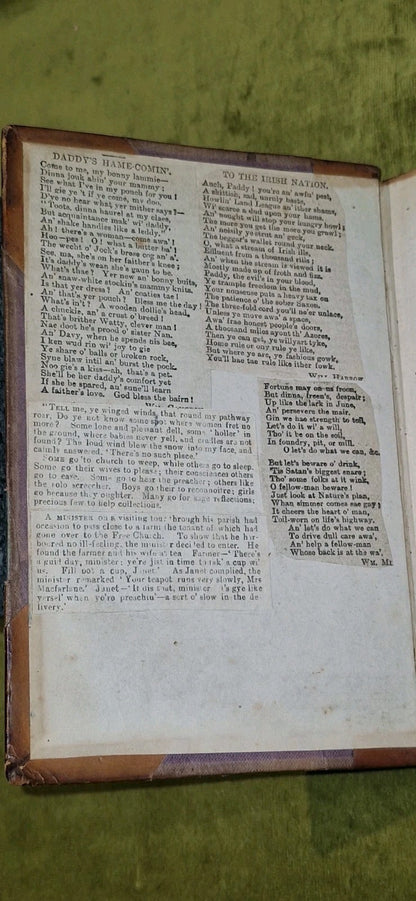 DADDY'S HAME-COMIN'.
Come to me, my bonny lammie—
Dinna jouk ahin' your mammy;
See what I've in my pouch for you!
I'll gie ye't if ye come, my doo.
D'ye no hear what yer mither says?—
"Toots, dinna haurel at my claes,
But acquaintance mak' wi' daddy,
An' shake handies like a leddy."
Ah! there's a woman—come awa'!
Hoo—pee! O! what a butter ba'!
The wecht o' Jock's brase org an' a'.
See, ma, she's on her faither's knee;
It's daddy's wean she's gaun to be.
What's thae? Yer new an' bonny buits,
An' snaw-white stockin's mammy knits.
Is that yer dress? An' coaties tae!
An' that's yer pouch? Bless me the day!
What's in't? A wooden dollie's head,
A chuckie, an' a crust o' breed!
That's brither Watty, clever man!
Nae doot he's proud o' sister Nan.
An' Davy, when he spends his bee,
I ken wud rin wi' joy to gie
Ye share o' balls or broken rock,
Syne blaw intil an' burst the pock.
Noo gie's a kiss—ah, that's a pet
She'll be her daddy's comfort yet
If she be spared, an' sune'll learn
A faither's love. God bless the bairn!
"TELL me, ye winged winds, that round my pathway
roar, Do ye not know some spot where women fret no
more? Some lone and pleasant dell, some 'holler' in
the ground, where babies never yell, and cradles are not
found? The loud wind blew the snow into my face, and
calmly answered, 'There's no such place.'"
SOME go to church to weep, while others go to sleep.
Some go their wives to please; their consciences others
go to ease. Some go to hear the preacher; others like
the solo screecher. Boys go their to reconnoitre; girls
go because they oughter. Many go for sage reflections;
precious few to help collections.
A MINISTER on a visiting tour through his parish had
occasion to pass close to a farm the tenant of which had
gone over to the Free Church. To show that he har-
boured no ill-feeling, the minister decided to enter. He
found the farmer and his wife at tea. Farmer—'There's
a guid day, minister; ye're jist in time to tak' a cup wi'
us. Fill oot a cup, Janet.' As Janet complied, the
minister remarked 'Your teapot runs very slowly, Mrs
Macfarlane.' Janet—'It dis that, minister it's gye like
yersel' when ye're preachin'—a sort o' slow in the de
livery.'
TO THE IRISH NATION.
Auch, Paddy! you're an' awfu' pest,
A skittish, sad, unruly baste,
Howlin' Land League an' ither shams,
Wi' scarce a dud upon your hams.
An' nought will stop your hungry howl;
The more you get the more you growl,
An' noisily ye strut an' geck,
The beggar's wallet round your neck.
O, what a stream of Irish ills,
Effluent from a thousand rills;
An' when the stream is viewed it is
Mostly made up of froth and fizz.
Paddy, the evil's in your blood,
Ye trample freedom in the mud,
Your nonsense puts a heavy tax on
The patience o' the sober Saxon.
The three-fold cord you'll ne'er unlace,
Unless ye move awa' a space,
Awa' frae honest people's doors,
A thousand miles ayont th' Azores,
Then ye can gey, ye willyart tyke,
Home rule or ony rule ye like,
But where ye are, ye fashious gowk,
You'll hae the rule like ither fowk.
Fortune may on us froon,
But dinna, freen's, despair;
Up like the lark in June,
An' persevere the mair.
Gin we hae strength to toil,
Let's do it wi' a will,
Tho' it be on the soil,
In foundry, pit, or mill.
O let's do what we can, &c.
But let's beware o' drink,
'Tis Satan's biggest snare;
Tho' some folks at it wink,
O fellow-man beware!
Just look at Nature's plan,
Whan simmer comes sae gay;
It cheers the heart o' man,
Toil-worn on life's highway.
An' let's do what we can
To drive dull care awa',
An' help a fellow-man
Whose back is at the wa'.
WM. MI